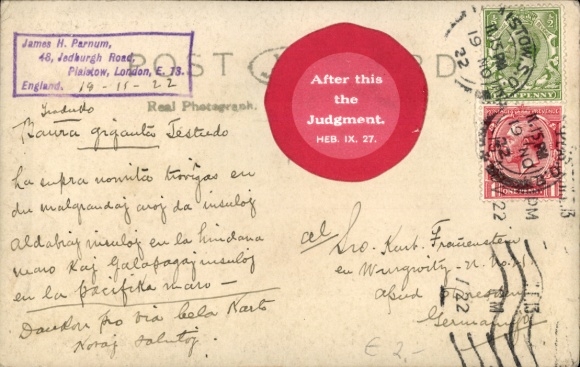 James H. Parnum,
48, Jedburgh Road,
Plaistow, London, E. 13.
England. 19-11-22
POST CARD
Real Photograph.
After this
the
Judgment.
HEB. IX. 27.
giganta Testudo
La supra nomita troviĝas en
du malgrandaj aroj da insuloj
Aldabraj insuloj en la hindana
maro kaj Galapagaj insuloj
en la pacifika maro —
Dankon pro via bela Karto
Koraj salutoj.
al Sro. Kurt
en
apud
Germany
€ 2,-
PLAISTOW
19 NO
22
PENNY